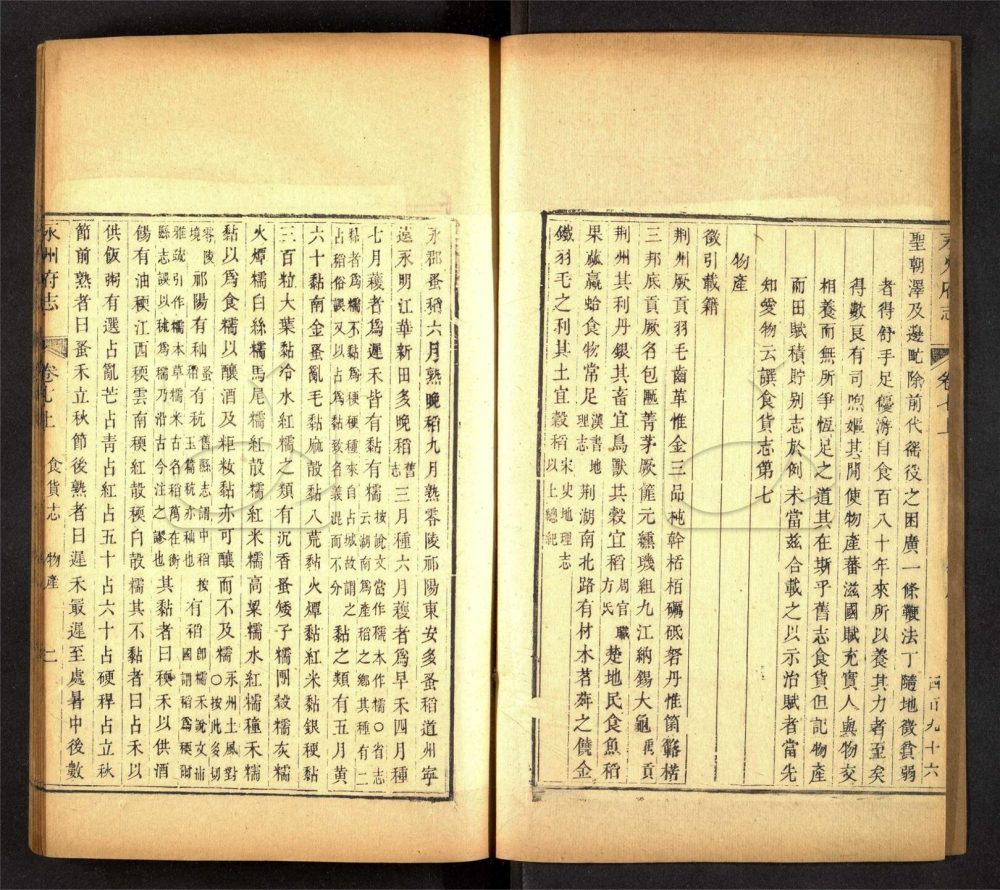 永州府志 卷七上
聖朝澤及邊甿除前代徭役之困廣一條鞭法丁隨地徵貧弱
者得舒手足優游自食百八十年來所以養其力者至矣
得數良有司煦嫗其閒使物產蕃滋國賦充實人與物交
相養而無所爭恆足之道其在斯乎舊志食貨但記物產
而田賦積貯别志於例未當茲合載之以示治賦者當先
知愛物云譔食貨志第七
物產
徵引載籍
荆州厥貢羽毛齒革惟金三品杶幹栝柏礪砥砮丹惟箘簵楛
三邦底貢厥名包匭菁茅厥篚元纁璣組九江納錫大龜禹貢
荆州其利丹銀其畜宜鳥獸其穀宜稻周官職方氏楚地民食魚稻
果蓏蠃蛤食物常足漢書地理志荆湖南北路有材木茗荈之饒金
鐵羽毛之利其土宜穀稻宋史地理志以上總紀
永郡蚤稻六月熟晚稻九月熟零陵祁陽東安多蚤稻道州寧
遠永明江華新田多晚稻舊志三月種六月穫者爲早禾四月種
七月穫者爲遲禾皆有黏有糯按說文當作稬本作糯〇省志
黏者爲糯不黏爲秔秔種來自占城故謂之
占稻俗誤又以占爲黏致名義混而不分
云湖南爲產稻之鄉其種有二
黏之類有五月黄
六十黏南金蚤亂毛黏麻殻黏八荒黏火燂黏紅米黏銀稉黏
三百粒大葉黏冷水紅糯之類有沉香蚤矮子糯團穀糯灰糯
火燂糯白絲糯馬尾糯紅殻糯紅米糯高粱糯水紅糯穜禾糯
黏以爲食糯以釀酒及粔籹黏亦可釀而不及糯〇按此多切
永州土風對
零陵祁陽有秈稻有秔
有稻
其黏者曰稉禾以供酒
餳有油稉江西稉雲南稉紅殻稉白殻糯其不黏者曰占禾以
供飯粥有選占亂芒占青占紅占五十占六十占硬稈占立秋
節前熟者曰蚤禾立秋節後熟者曰遲禾最遲至處暑中後數
永州府志 卷七上 食貨志 物產 二